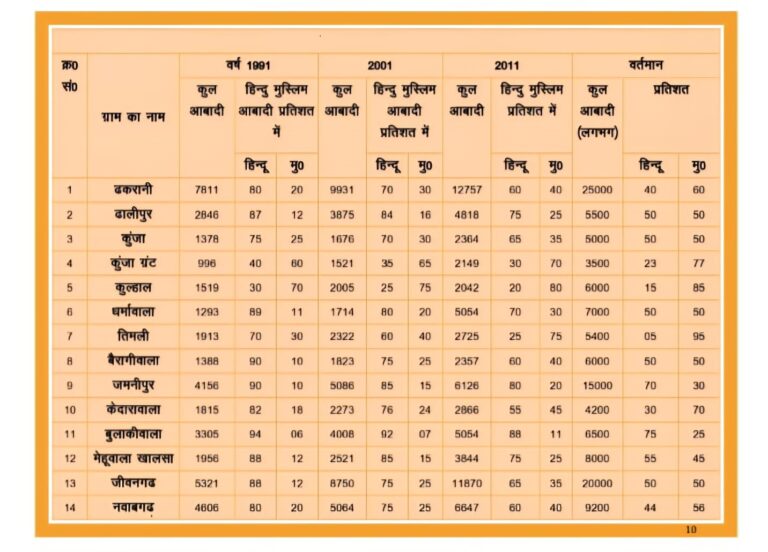 क्र0 सं0 ग्राम का नाम वर्ष 1991 2001 2011 वर्तमान
कुल आबादी हिन्दु मुस्लिम आबादी प्रतिशत में कुल आबादी हिन्दु मुस्लिम आबादी प्रतिशत में कुल आबादी हिन्दु मुस्लिम प्रतिशत में कुल आबादी (लगभग) प्रतिशत
हिन्दू मु0 हिन्दू मु0 हिन्दू मु0 हिन्दू मु0
1 ढकरानी 7811 80 20 9931 70 30 12757 60 40 25000 40 60
2 ढालीपुर 2846 87 12 3875 84 16 4818 75 25 5500 50 50
3 कुंजा 1378 75 25 1676 70 30 2364 65 35 5000 50 50
4 कुंजा ग्रंट 996 40 60 1521 35 65 2149 30 70 3500 23 77
5 कुल्हाल 1519 30 70 2005 25 75 2042 20 80 6000 15 85
6 धर्मावाला 1293 89 11 1714 80 20 5054 70 30 7000 50 50
7 तिमली 1913 70 30 2322 60 40 2725 25 75 5400 05 95
8 बैरागीवाला 1388 90 10 1823 75 25 2357 60 40 6000 50 50
9 जमनीपुर 4156 90 10 5086 85 15 6126 80 20 15000 70 30
10 केदारावाला 1815 82 18 2273 76 24 2866 55 45 4200 30 70
11 बुलाकीवाला 3305 94 06 4008 92 07 5054 88 11 6500 75 25
12 मेहूवाला खालसा 1956 88 12 2521 85 15 3844 75 25 8000 55 45
13 जीवनगढ 5321 88 12 8750 75 25 11870 65 35 20000 50 50
14 नवाबगढ़ 4606 80 20 5064 75 25 6647 60 40 9200 44 56
10